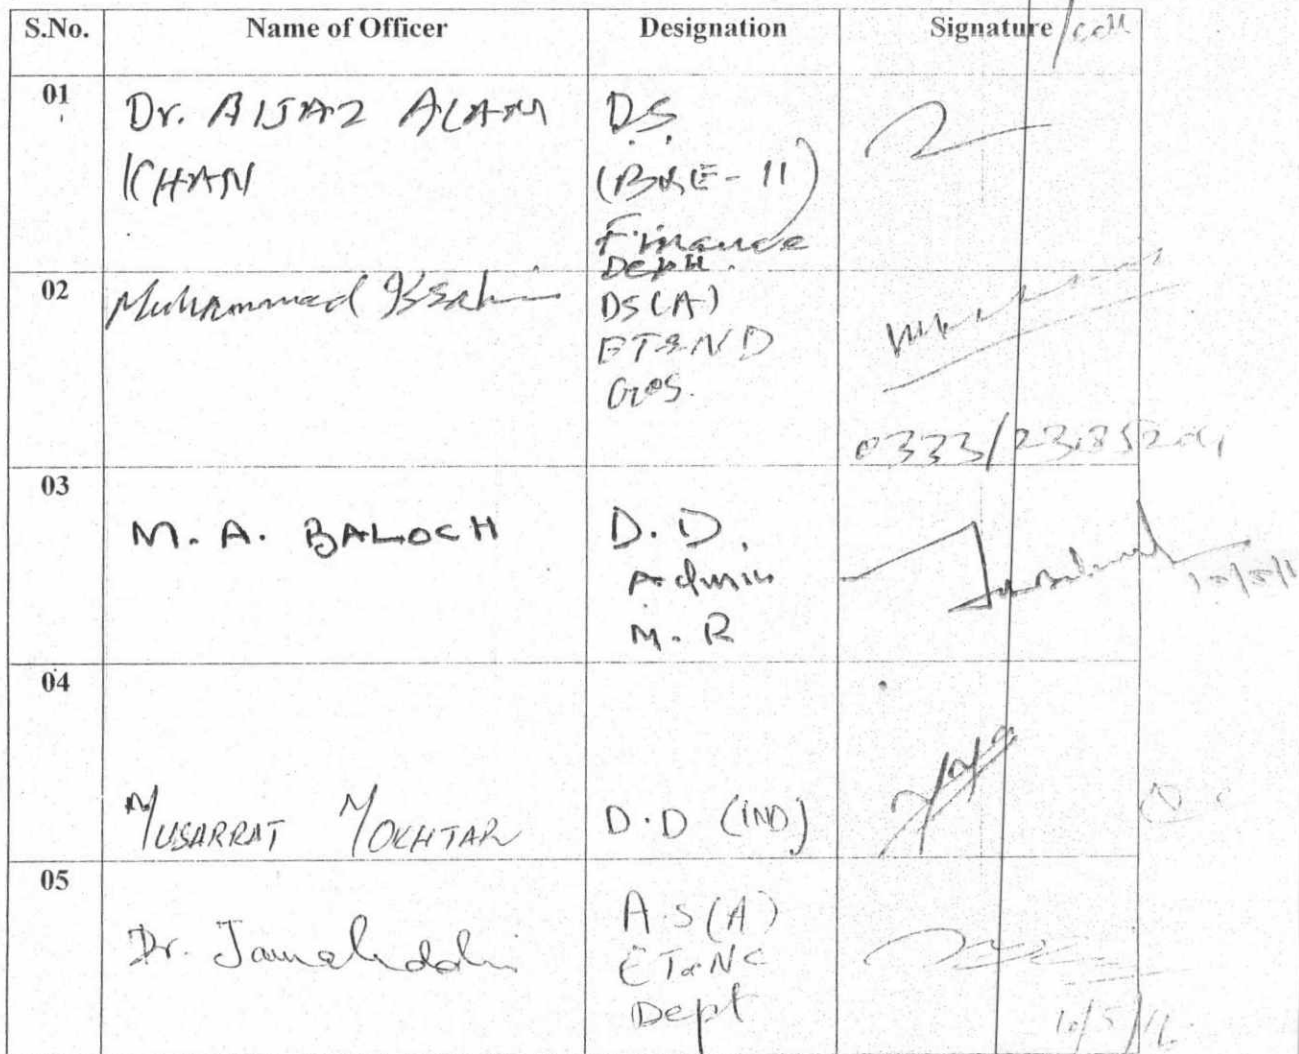 S.No. Name of Officer Designation Signature /cell
01 Dr. AIJAZ ALAM D.S.
KHAN (B&E-II)
Finance
Deptt.
02 Muhammad DS(A)
ET&ND
GoS.
0333/
03 M. A. BALOCH D. D.
Admin
M. R
04
MUSARRAT MOKHTAR D.D (IND)
05 A.S(A)
Dr. Jamaluddin ET&NC
Dept
10/5/16